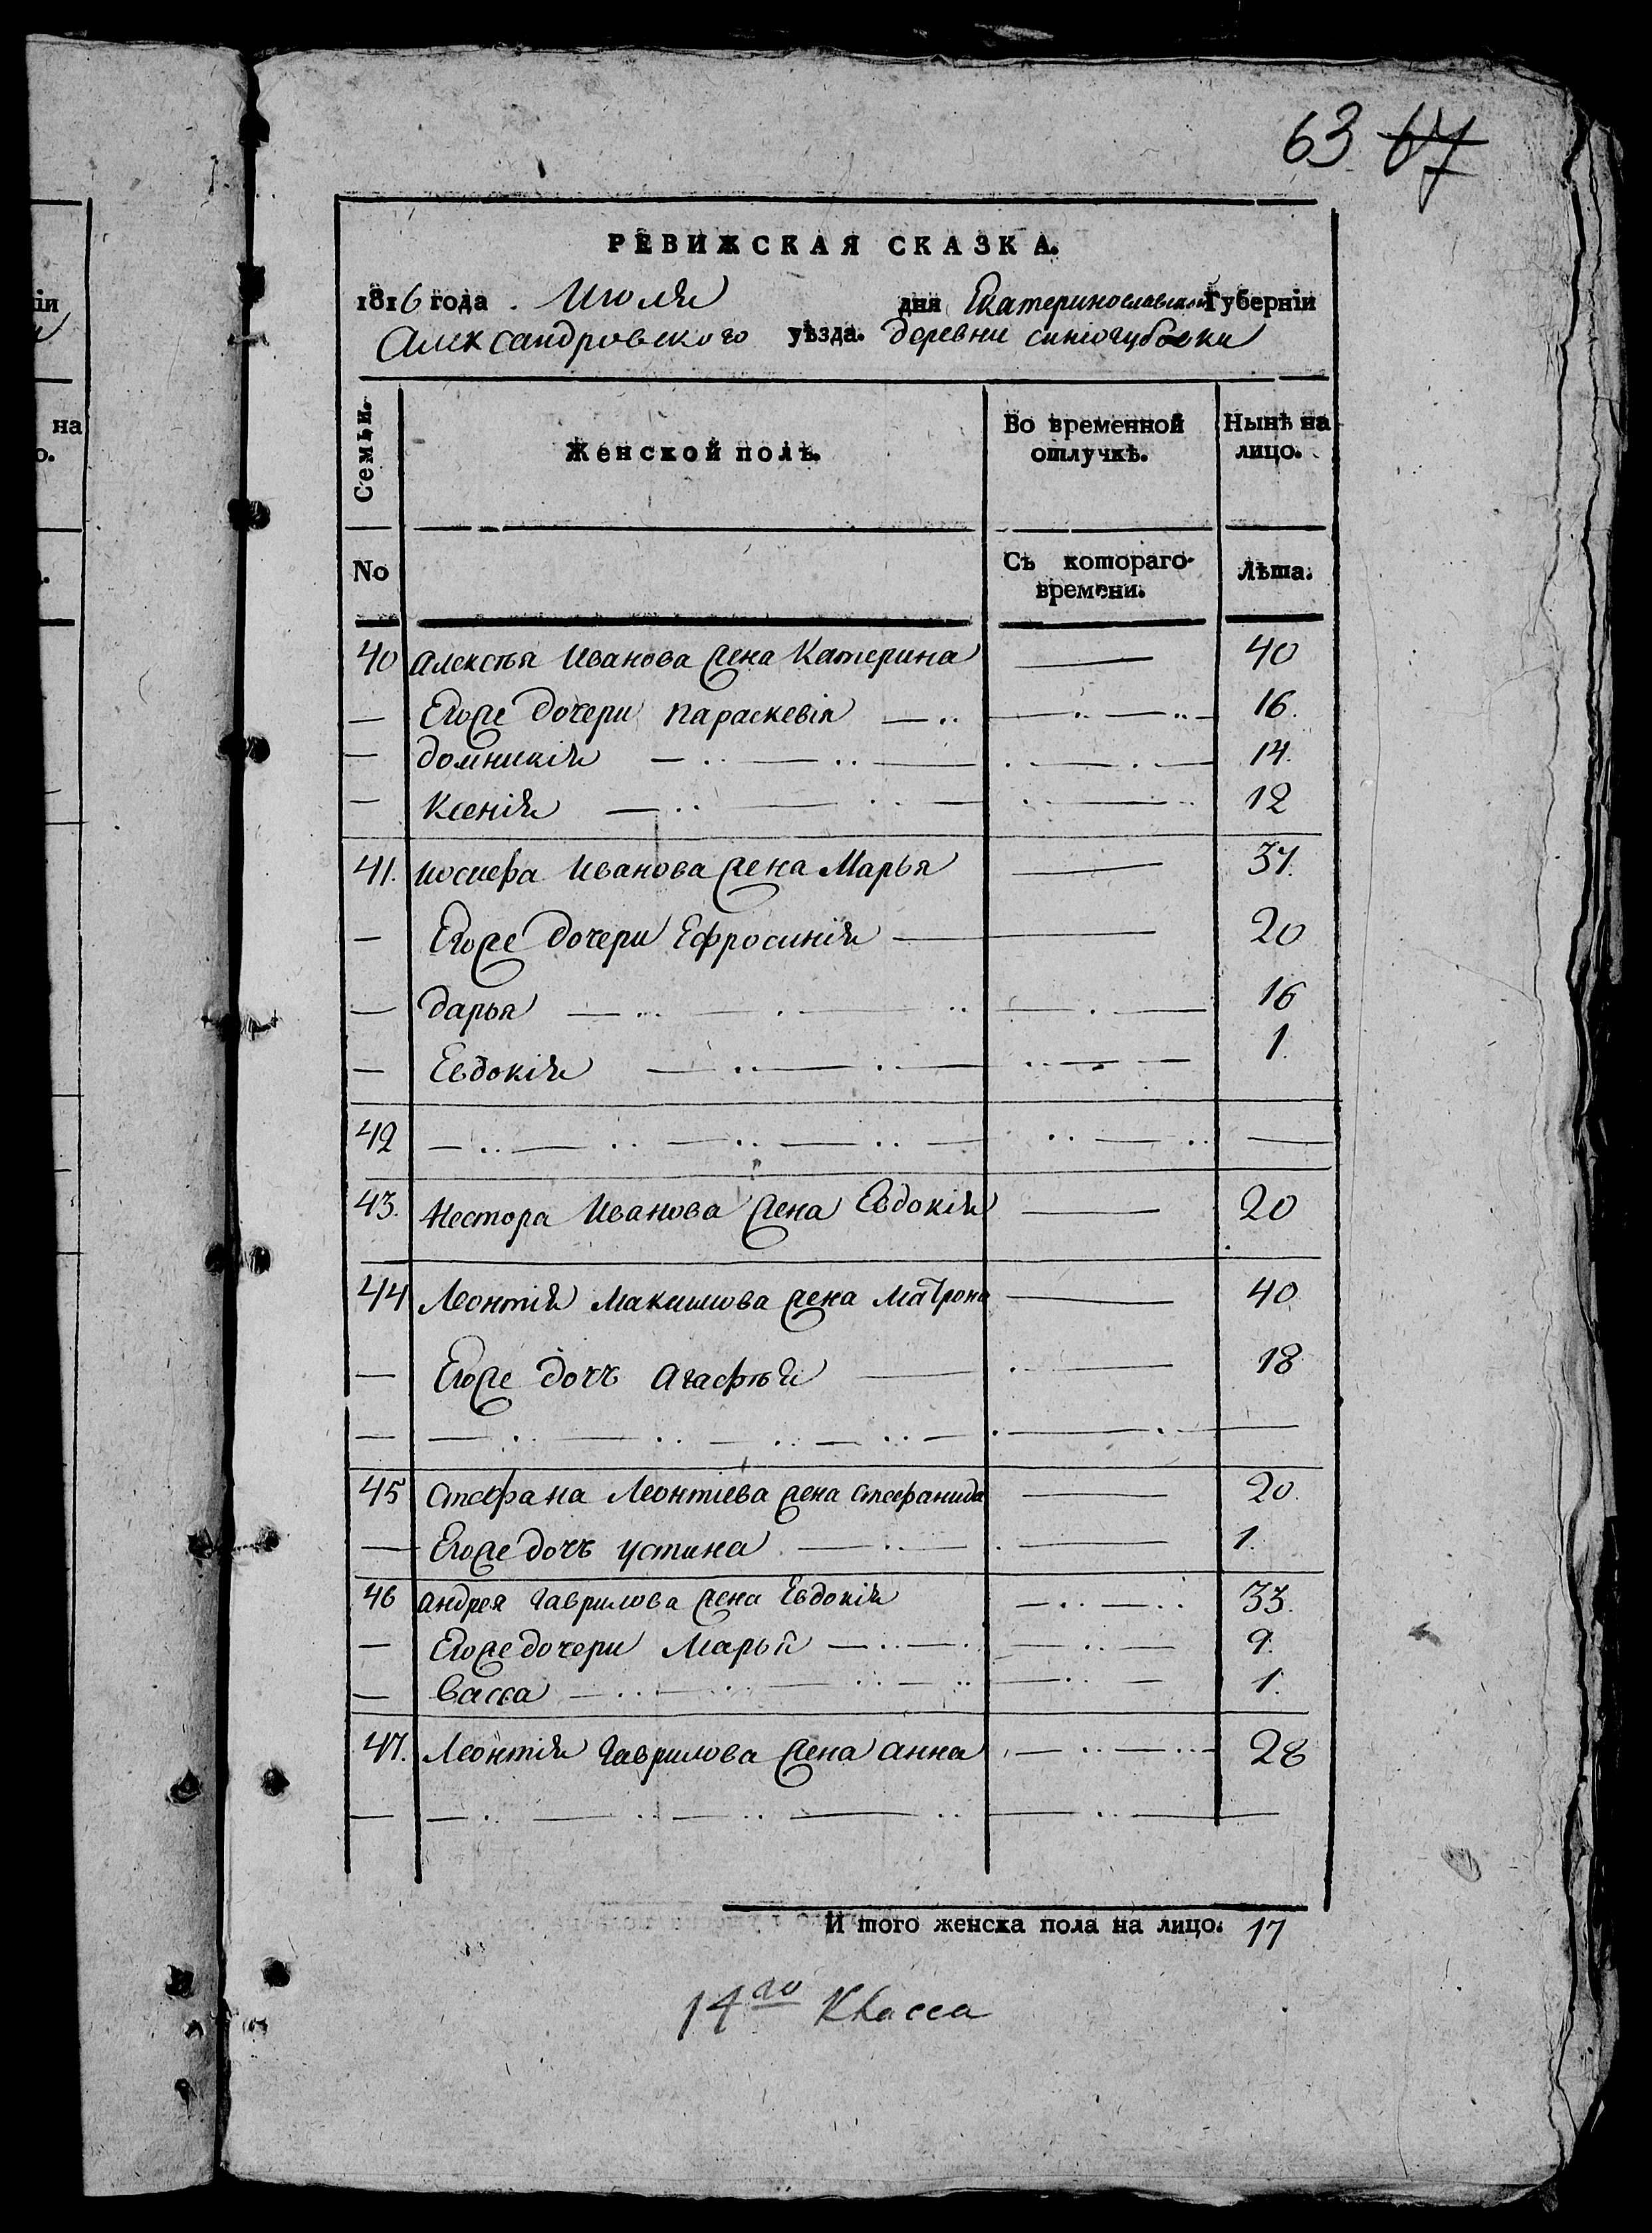 63 67
РЕВИЖСКАЯ СКАЗКА.
1816 года Июля дня Екатеринославской Губерніи
Александровского уѣзда. деревни синогубовки
Семьи. Женской полъ. Во временной отлучкѣ. Нынѣ на лицо.
No Съ котораго времени. Лѣта.
40 Алексѣя Иванова жена Катерина — 40
— Егоже дочери Параскевія — 16.
— домникія — 14.
— Ксенія — 12
41. Иосифа Иванова жена Марья — 37.
— Егоже дочери Ефросинія — 20
— дарья — 16
— Евдокія — 1.
42 — — —
43. Нестора Иванова жена Евдокія — 20
44 Леонтія Максимова жена Матрона — 40
— Егоже дочь Агафѣя — 18
— — — —
45 Стефана Леонтіева жена стефанида — 20.
— Егоже дочь устина — 1.
46 андрея Гаврилова жена Евдокія — 33.
— Егоже дочери Марья — 9.
— Васса — 1.
47. Леонтія Гаврилова жена анна — 28
— — — —
И того женска пола на лицо. 17
14го Класса
іи
на
о.